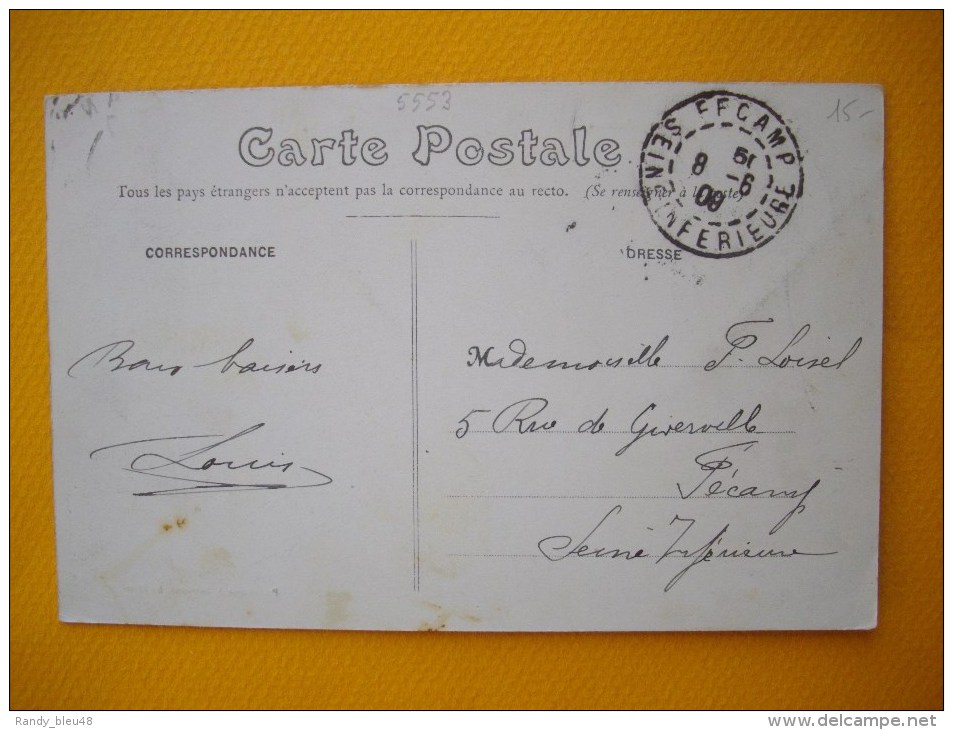 5553
15-
Carte Postale
Tous les pays étrangers n'acceptent pas la correspondance au recto. (Se renseigner à la Poste)
FECAMP
SEINE INFERIEURE
8 15
6
08
CORRESPONDANCE
DRESSE
Bons baisers
Louis
Mademoiselle F. Loisel
5 Rue de Giverville
Fécamp
Seine Inférieure
Randy_bleu48
www.delcampe.net